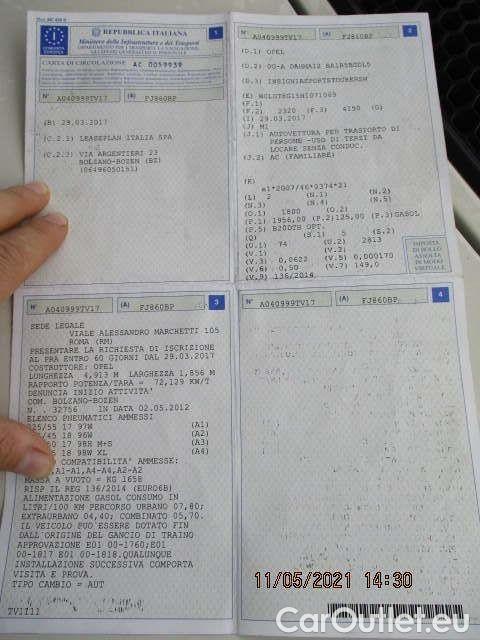 REPUBBLICA ITALIANA
1
Ministero delle Infrastrutture e dei Trasporti
CARTA DI CIRCOLAZIONE AC 0059939
N° A040999TV17 (A) FJ860BP
(B) 29.03.2017
(C.2.1) LEASEPLAN ITALIA SPA
(C.2.3) VIA ARGENTIERI 23
BOLZANO-BOZEN (BZ)
(06496050151)
N° A040999TV17 (A) FJ860BP 2
(D.1) OPEL
(D.3) INSIGNIASPORTSTOURERSW
(F.1)
(F.2) 2320 (F.3) 4150 (G)
(I) 29.03.2017
(J) M1
(J.1) AUTOVETTURA PER TRASPORTO DI
PERSONE -USO DI TERZI DA
LOCARE SENZA CONDUC.
(J.2) AC (FAMILIARE)
(K)
e1*2007/46*0374*21
(L) 2 (N.1) (N.2)
(N.3) (N.4) (N.5)
(O.1) 1800 (O.2)
(P.1) 1956,00 (P.2)125,00 (P.3)GASOL
(P.5) B20DTH OPT.
(Q) (S.1) 5 (S.2)
(U.1) 74 (U.2) 2813
(V.1) (V.2)
(V.3) 0,0622 (V.5) 0,000170
(V.6) 0,50 (V.7) 149,0
(V.9) 136/2014
IMPOSTA
DI BOLLO
ASSOLTA
IN MODO
VIRTUALE
N° A040999TV17 (A) FJ860BP 3
SEDE LEGALE
VIALE ALESSANDRO MARCHETTI 105
ROMA (RM)
PRESENTARE LA RICHIESTA DI ISCRIZIONE
AL PRA ENTRO 60 GIORNI DAL 29.03.2017
COSTRUTTORE: OPEL
LUNGHEZZA 4,913 M LARGHEZZA 1,856 M
RAPPORTO POTENZA/TARA = 72,129 KW/T
DENUNCIA INIZIO ATTIVITA'
COM. BOLZANO-BOZEN
N. . 32756 IN DATA 02.05.2012
ELENCO PNEUMATICI AMMESSI
225/55 17 97W (A1)
/45 18 96W (A2)
17 98R M+S (A3)
18 98W XL (A4)
COMPATIBILITA' AMMESSE:
A1-A1,A4-A4,A2-A2
MASSA A VUOTO = KG 1658
RISP IL REG 136/2014 (EURO6B)
ALIMENTAZIONE GASOL CONSUMO IN
LITRI/100 KM PERCORSO URBANO 07,80;
EXTRAURBANO 04,40; COMBINATO 05,70.
IL VEICOLO PUO' ESSERE DOTATO FIN
DALL'ORIGINE DEL GANCIO DI TRAINO
APPROVAZIONE E01 00-1760;E01
00-1817 E01 00-1818.QUALUNQUE
INSTALLAZIONE SUCCESSIVA COMPORTA
VISITA E PROVA.
TIPO CAMBIO = AUT
TV1111
N° A040999TV17 (A) FJ860BP 4
11/05/2021 14:30
CarOutlet.eu